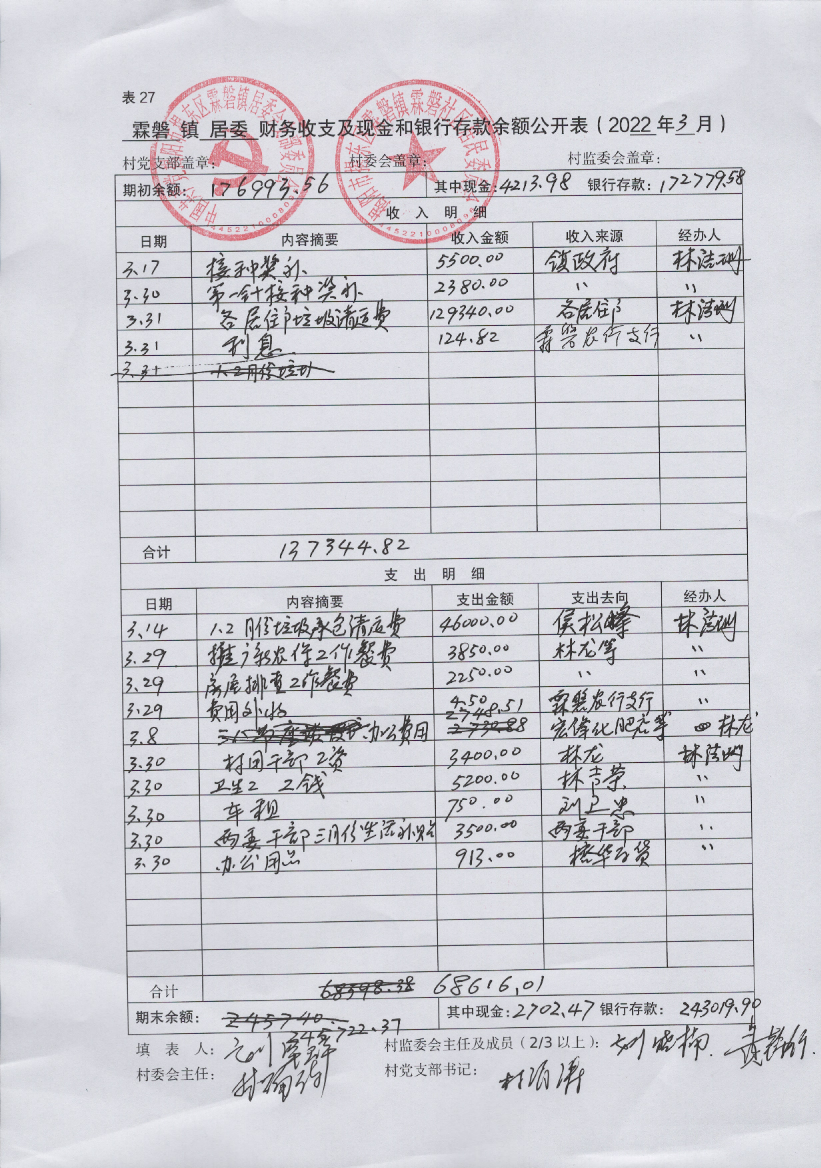 表 27
霖磐 镇 居委 财务收支及现金和银行存款余额公开表（2022年3月）
村党支部盖章： 村委会盖章： 村监委会盖章：
期初余额：176993.56 其中现金：4213.98 银行存款：172779.58
收 入 明 细
日期 内容摘要 收入金额 收入来源 经办人
3.17 接种奖补 5500.00 镇政府
3.30 第一针接种奖补 2380.00 〃 〃
3.31 各居住户垃圾清运费 129340.00 各居住户
3.31 利息 124.82 霖磐农行支行 〃
3.31 1.2月份垃圾
合计 137344.82
支 出 明 细
日期 内容摘要 支出金额 支出去向 经办人
3.14 1.2月份垃圾承包清运费 46000.00
3.29 推广新农保工作餐费 3850.00 林龙等 〃
3.29 房屋排查工作餐费 2250.00 〃 〃
3.29 费用外收 4.50 霖磐农行支行 〃
3.8 办公费用 2748.51 宏伟化肥店等 林龙
3.30 村团干部工资 3400.00 林龙
3.30 卫生工 工钱 5200.00 林吉荣 〃
3.30 车租 750.00 〃
3.30 两委干部三月份生活补贴 3500.00 两委干部 〃
3.30 办公用品 913.00 百货 〃
合计 68598.38 68616.01
期末余额：245740. 245722.37 其中现金：2702.47 银行存款：243019.90
填 表 人： 村监委会主任及成员（2/3 以上）：
村委会主任： 村党支部书记：